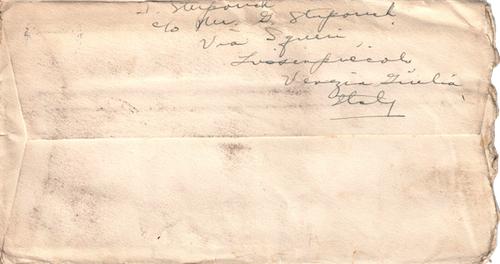 J. Stuparich
c/o Mr. G. Stuparich
Via Squeri
Lussinpiccolo
Venezia Giulia
Italy